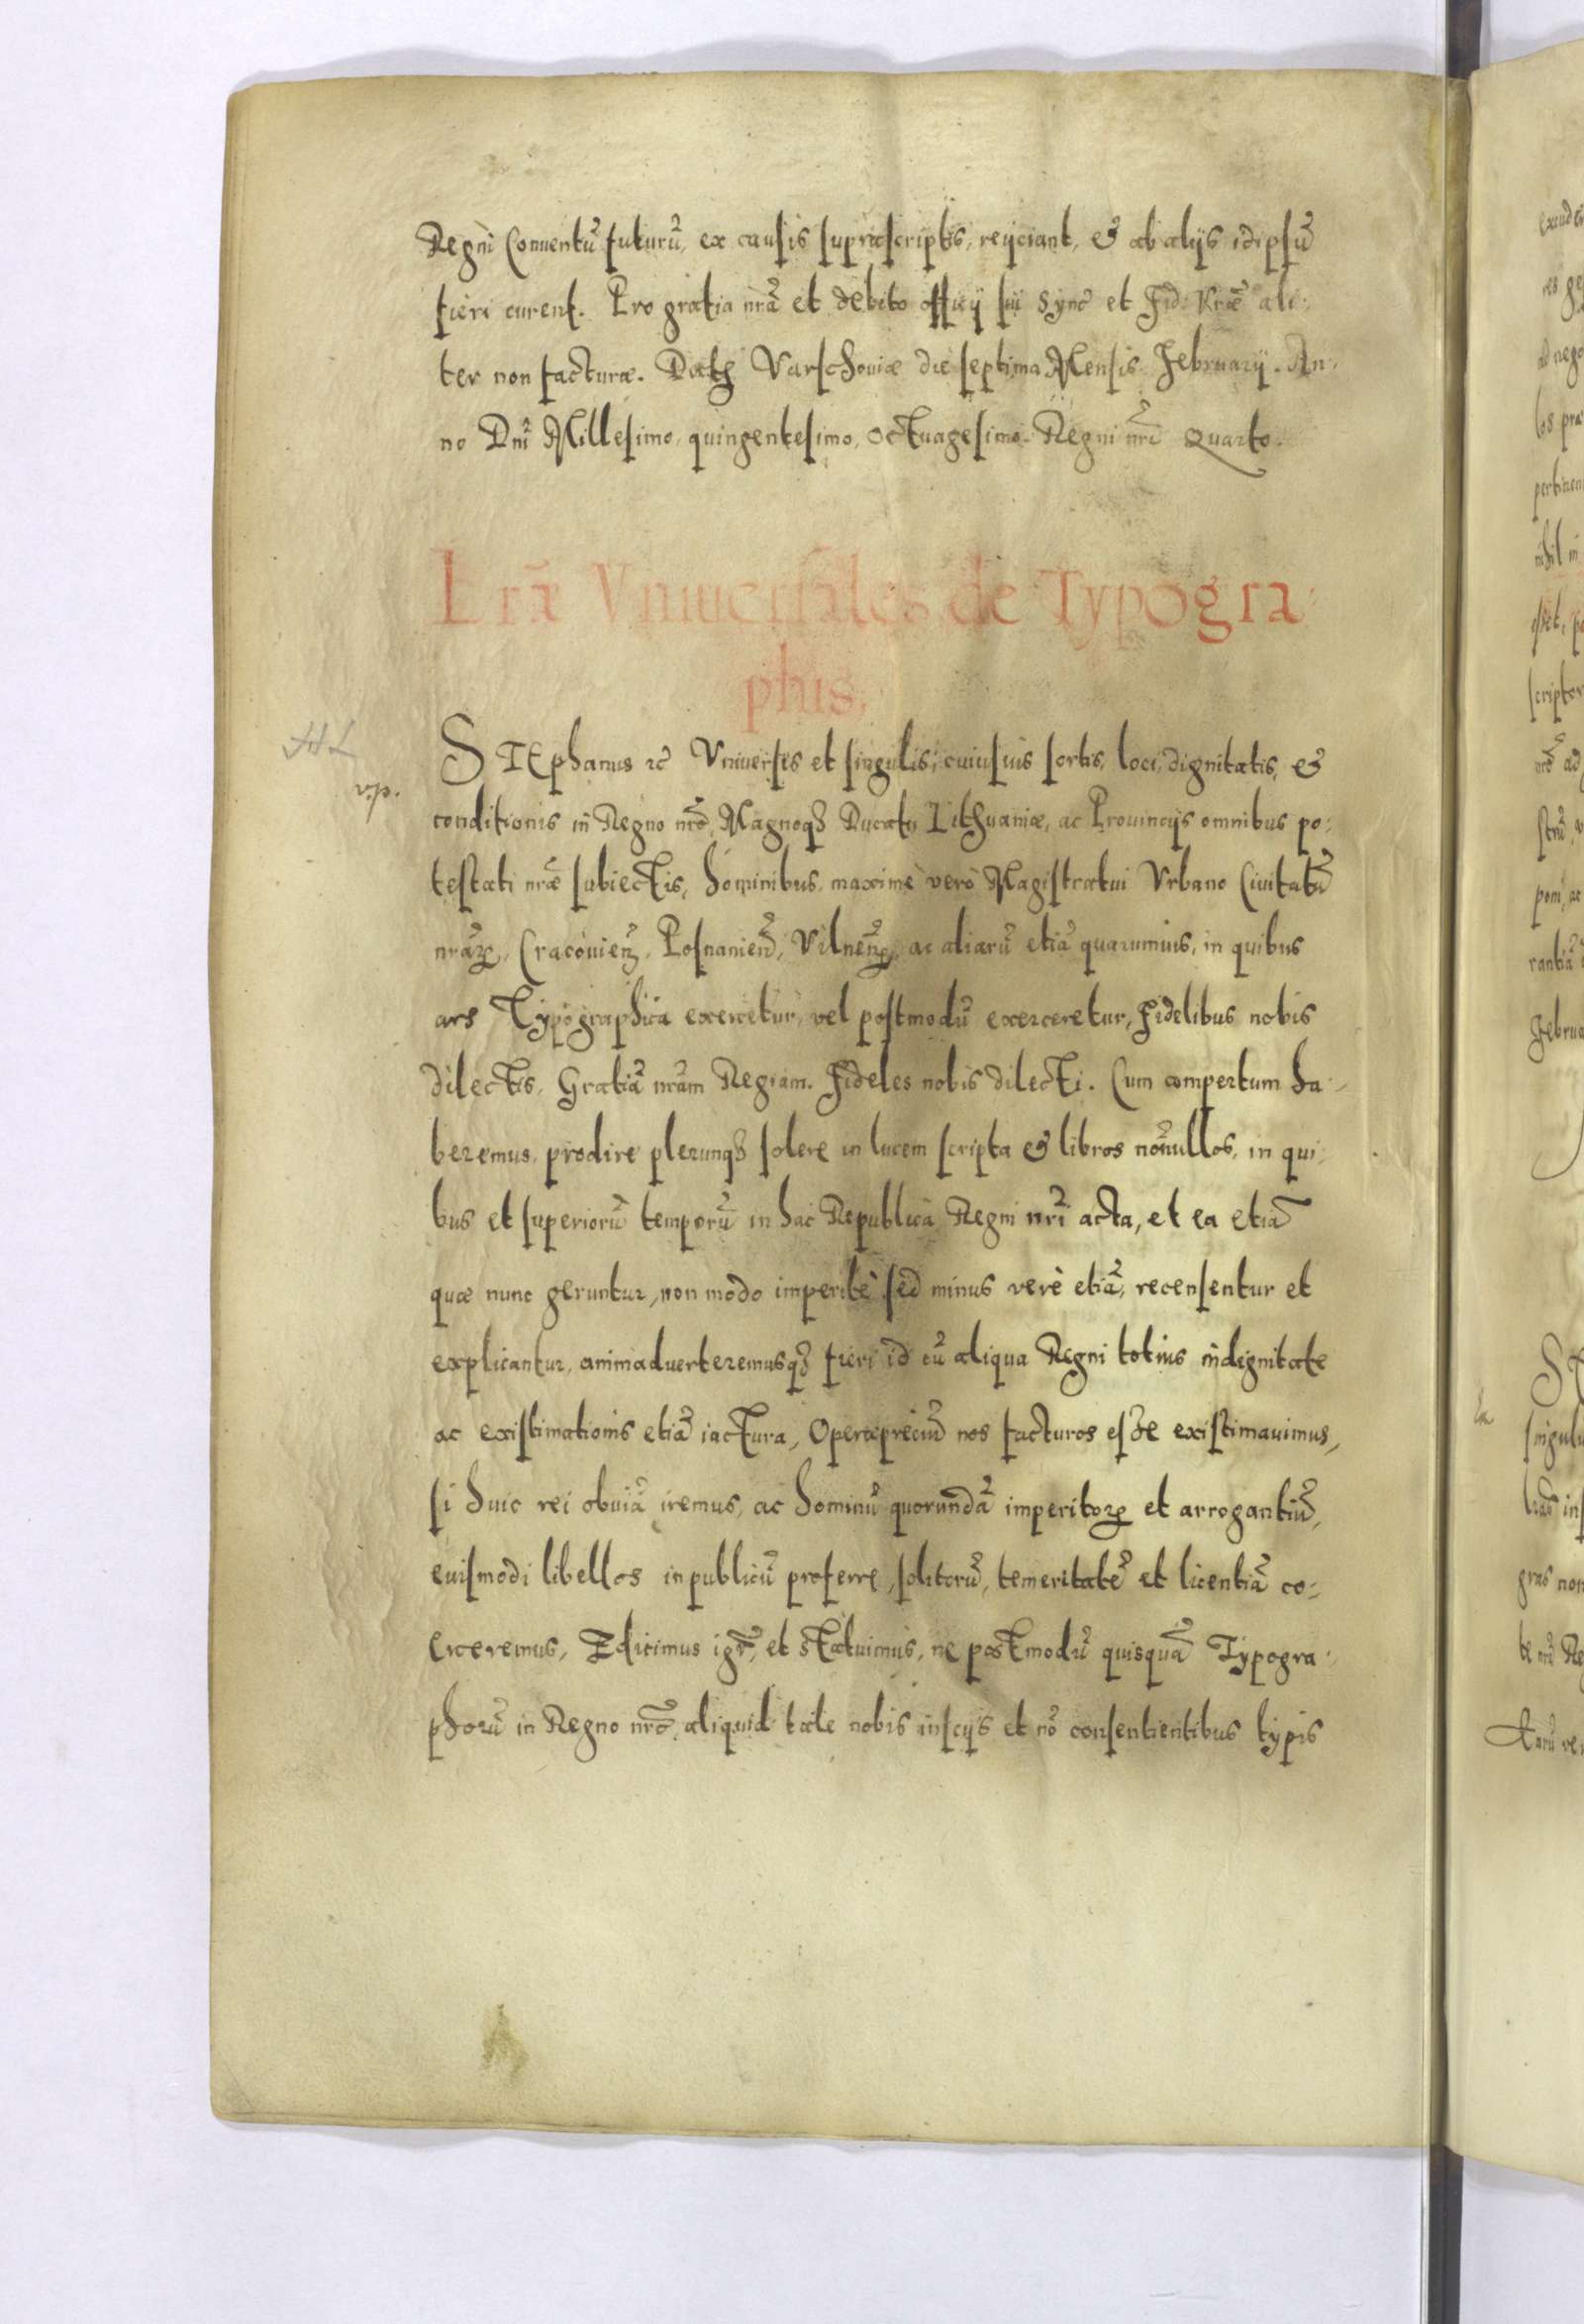 Regni Conuentũ futurũ, ex causis suprascriptis, reijciant, & ab alijs idipsũ
fieri curent. Pro gratia nrã et debito officij sui Sync̃ et Fid: Vræ̃ ali:
ter non facturæ. Datƺ Varschouiæ die septima Mensis February. An:
no Dni Millesimo, quingentesimo, octuagesimo. Regni nrĩ Quarto.
Lrã Vniuersales de Typogra:
phis,
STEphanus ꝛc̃ Vniuersis et singulis, cuiusuis sortis, loci, dignitatis, &
conditionis in Regno nrõ, Magnoqꝫ Ducatu Lithuaniæ, ac Prouincijs omnibus po:
testati nræ̃ subiectis, hominibus, maximè verò Magistratui Vrbano Ciuitatũ
nrãꝝ, Cracouienƺ, Posnanien̄, Vilneñ, ac aliarũ etiã quarumuis, in quibus
ars Typographica exercetur, vel postmodũ exerceretur, fidelibus nobis
dilectis, Gratiã nrãm Regiam. Fideles nobis dilecti. Cum compertum ha:
beremus, prodire plerunqꝫ solere in lucem scripta & libros nõnullos, in qui:
bus et superiorũ temporũ in hac Republica Regni nrĩ acta, et ea etiã
quæ nunc geruntur, non modo imperitè sed minus verè etiã, recensentur et
explicantur, animaduerteremusqꝫ fieri id cũ aliqua Regni totius indignitate
ac existimationis etiã iactura, Operæpreciũ nos facturos esse existimauimus,
si huic rei obuiã iremus, ac hominũ quorundã imperitoꝝ et arrogantiũ,
euismodi libellos in publicũ proferre, solitorũ, temeritatẽ et licentiã co:
erceremus, Edicimus igr̃, et statuimus, ne postmodũ quisquã Typogra:
phorũ in Regno nrõ, aliquid tale nobis inscijs et nõ consentientibus typis